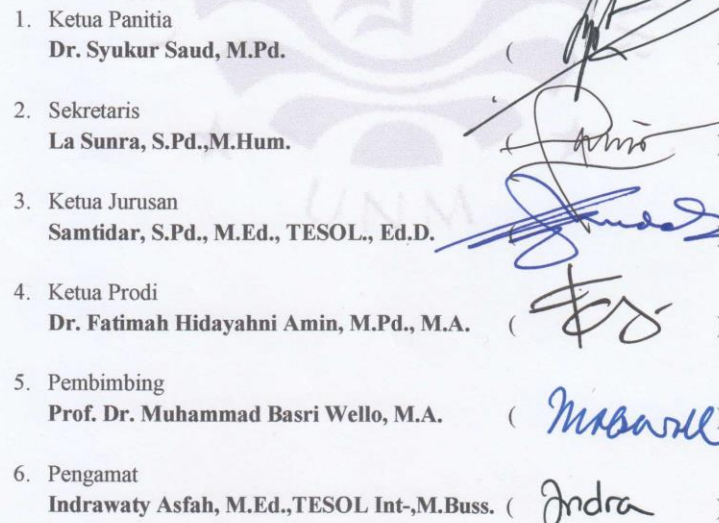 1. Ketua Panitia
Dr. Syukur Saud, M.Pd. (
2. Sekretaris
La Sunra, S.Pd.,M.Hum. (
UNM
3. Ketua Jurusan
Samtidar, S.Pd., M.Ed., TESOL., Ed.D. (
4. Ketua Prodi
Dr. Fatimah Hidayahni Amin, M.Pd., M.A. (
5. Pembimbing
Prof. Dr. Muhammad Basri Wello, M.A. (
6. Pengamat
Indrawaty Asfah, M.Ed.,TESOL Int-,M.Buss. ( Indra